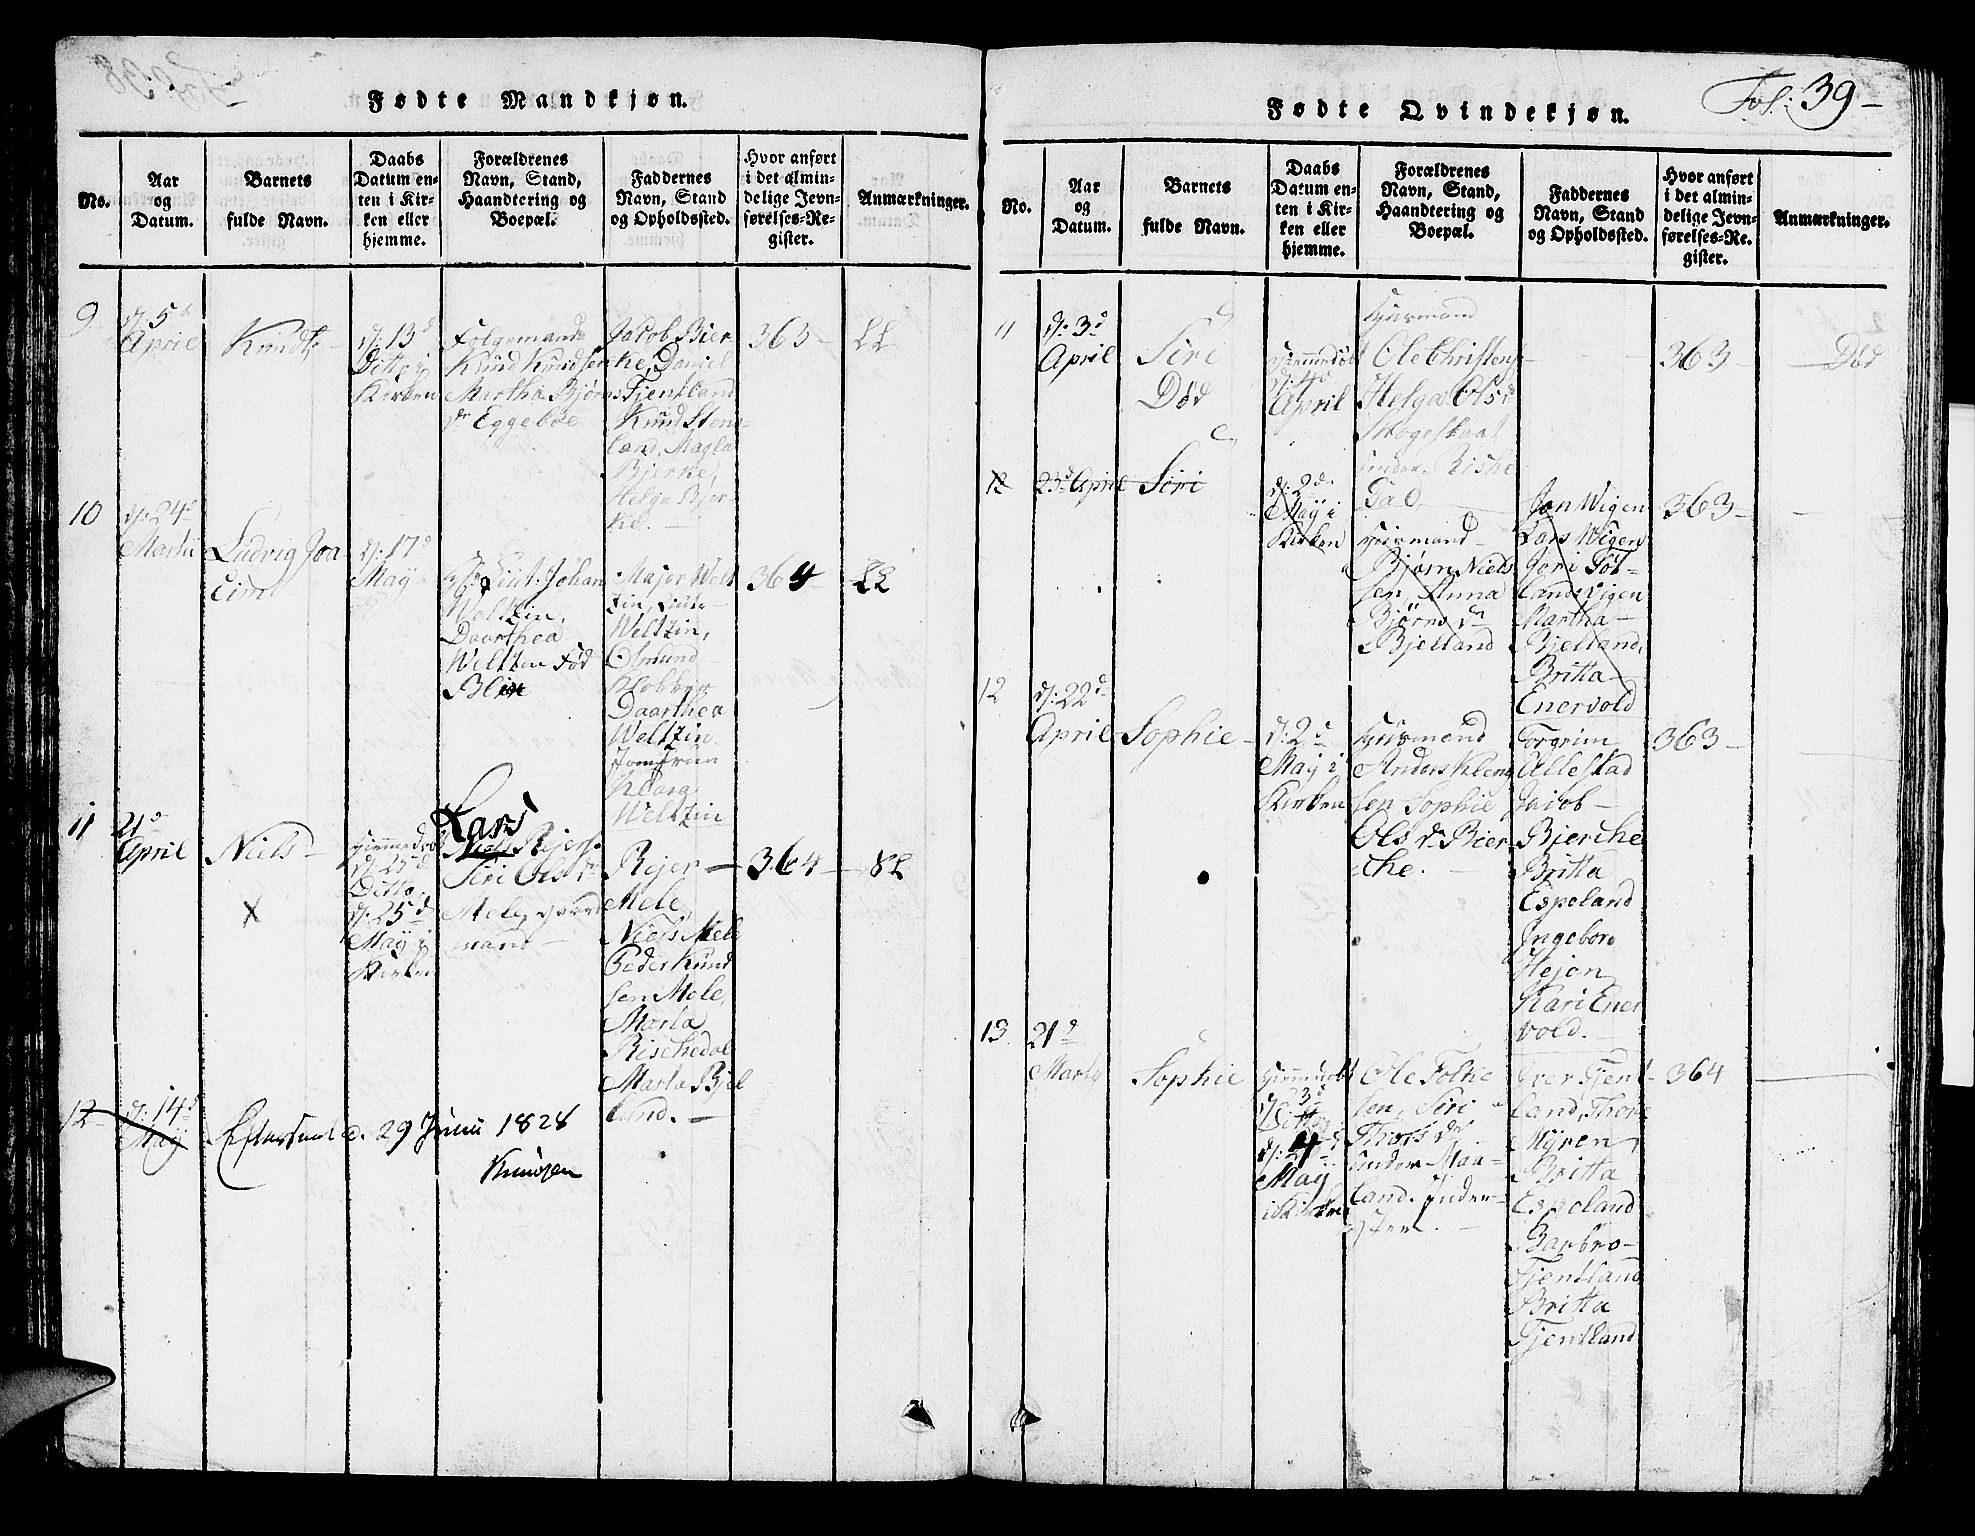 Fødte Mandkjøn.
No.
Aar
og
Datum.
Barnets
fulde Navn.
Daabs
Datum en-
ten i Kir-
ken eller
hjemme.
Forældrenes
Navn, Stand,
Haandtering og
Boepæl.
Faddernes
Navn, Stand
og Opholdssted.
Hvor anført
i det almin-
delige Jevn-
førelses-Re-
gister.
Anmærkninger.
9
d: 5
April
Knudt
d: 13d
Ditto i
Kirken
Folgemand
Knud Knudsen
Martha Bjørns
dr Eggeboe
Jacob Bier
ke, Daniel
Fjentland
Knud Stens
land, Magla
Bjerke,
Helga Bjer-
ke.
363
10
d: 24d
Martii
Ludvig Joa
cim
d: 17d
May
Johan
Weltzin,
Daarthea
Weltzin Fød
Major Welt
zin,
Weltzin,
Olmund
Daarthea
Weltzin
Jomfrue
Weltzin
364
11
21d
April
Niels
X
hjemmedøbt
d: 25d
Ditto
d: 25d
May i
Kirken
Lars
Niels Rejers.
Siri Ols dr
Mele, Gaard
mand
Rejer
Mele,
Niels Mele
Peder Knud
sen Mele,
Marta
Rischedal
Marta Bjel
land.
364
12
d: 14d
May
Efterseet d. 29 Junii 1828
Knudsen
Fødte Qvindekjøn.
Fol: 39
No.
Aar
og
Datum.
Barnets
fulde Navn.
Daabs
Datum en-
ten i Kir-
ken eller
hjemme.
Forældrenes
Navn, Stand,
Haandtering og
Boepæl.
Faddernes
Navn, Stand
og Opholdsted.
Hvor anført
i det almin-
delige Jevn-
førelses-Re-
gister.
Anmærkninger.
11
d: 3d
April
Siri
Død
hjemmedøbt
April
Huusmand
Ole Christens
Helga Ols d
under Riske
dal
363
Død
12
23d April
Siri
d: 2d
May i
Kirken
Huusmand
Bjørn Niels
sen, Anna
Bjørns dr
Bjelland
Jon Wigen
Lars Wigen
Jori Tøt-
land Wigen
Martha
Bjelland,
Britta
Enervold
363
12
d: 22d
April
Sophie
d: 2d
May i
Kirken
Huusmand
Anders Klem
sen Sophie
Ols dr Bier
che.
Torgrim
Allestad
Jacob
Bjerche
Britta
Espeland
Ingebor
Hejen
Kari Ener
vold.
363
13
21d
Marty
Sophie
hjemmedøbt
d: 3d
Ditto
May
i Kirken
Ole Tolke
sen, Siri
Thors dr
under Maa-
land. Inder-
Iver Fjent
land, Thor
Myren
Britta
Espeland
Barbro
Fjentland
Britta
Fjentland
364